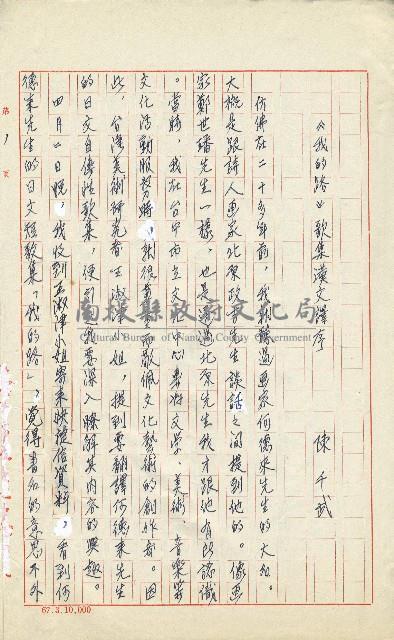 《我的路》歌集漢文譯序
陳千武
彷彿在二十多年前,我就聽過画家何德來先生的大名。
大概是跟詩人画家北原政吉先生談話之間提到他的。像画
家鄭世璠先生一樣,也是通過北原先生我才跟他有所認識
。當時,我在台中市立文化中心 文学、美術、音樂等
文化活動服務 ,就很 敬佩文化藝術的創作者。因
此,台灣美術研究者王淑津小姐,提到要翻譯何德來先生
的日文自傳性歌集,便引起我要深入瞭解其內容的興趣。
四月二日晚,我收到王淑津小姐寄來快捷信資料,看到何
德來先生的日文短歌集「我的路」,覺得書名的意思不外
第1頁
南投縣政府文化局
Cultural Bureau of Nantou County Government
67.3.10,000